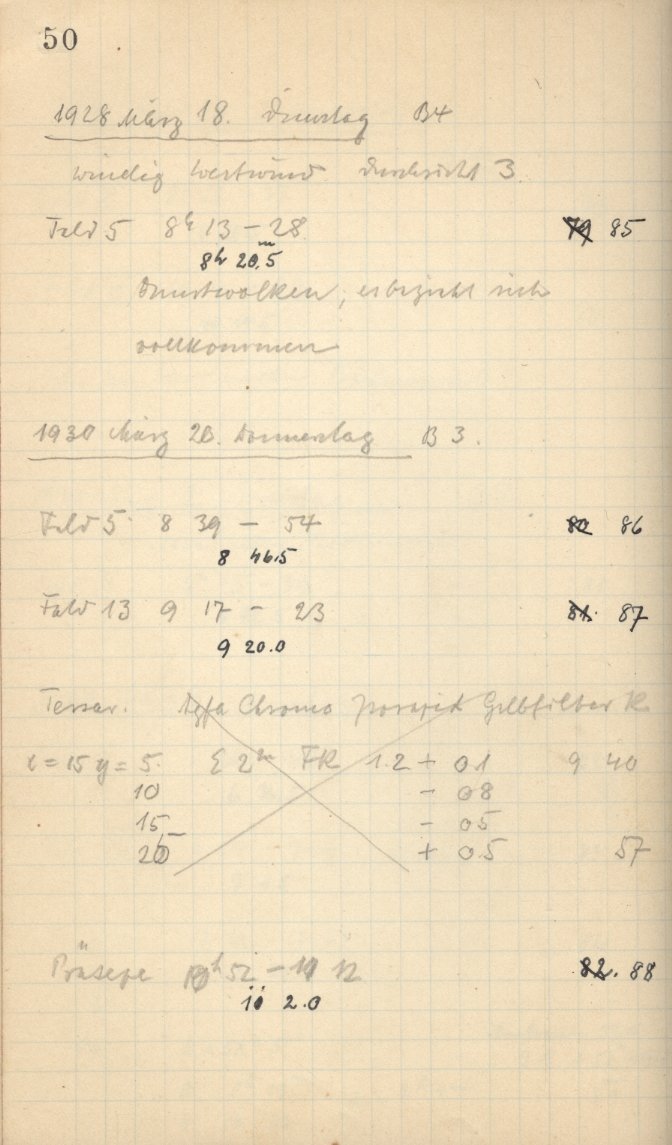 50
1928 März 18. Dienstag B4
windig Westwind Durchsicht 3
Feld 5 8h 13 – 28 79 85
8h 20.5m
Dunstwolken, es bezieht sich
vollkommen
1930 März 20. Donnerstag B 3.
Feld 5 8 39 – 54 80 86
8 46.5
Feld 13 9 17 – 23 81. 87
9 20.0
Tessar. Agfa Chromo Gelbfilter
x = 15 y = 5. Σ 2m FK 1.2 + 01 9 40
10 – 08
15 – 05
20 + 05 57
Präsepe 52 – 12 82. 88
2.0